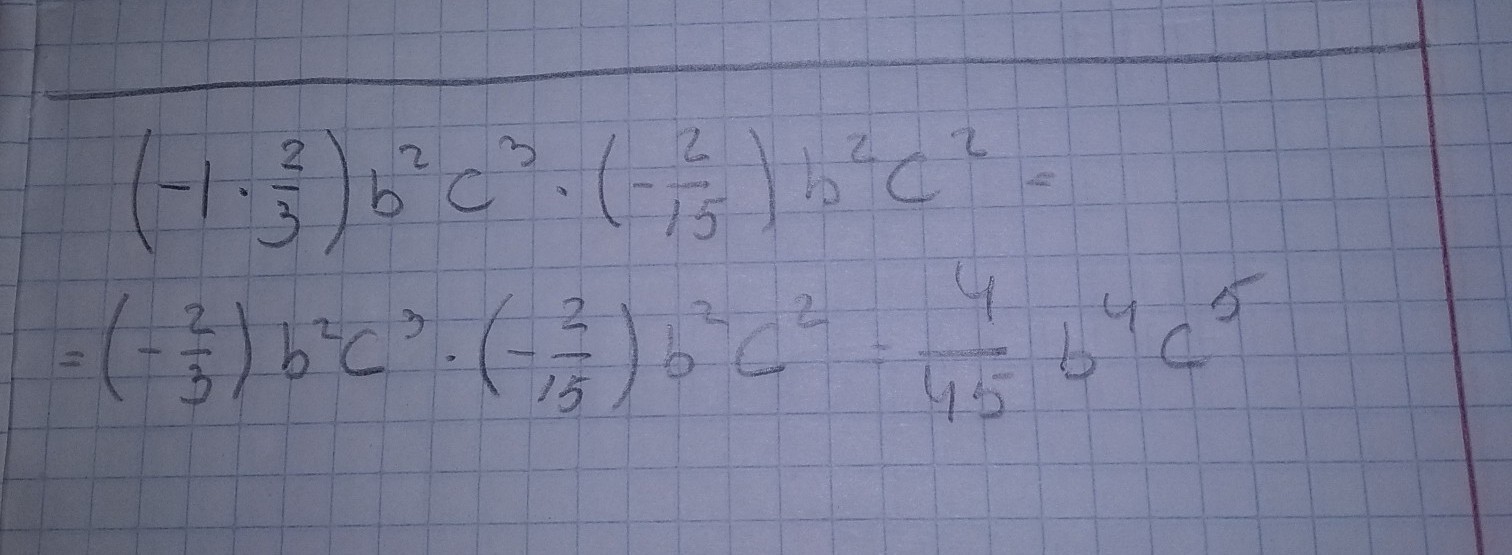 (-1 · 2/3) b² c³ · (- 2/15) b² c² =
= (- 2/3) b² c³ · (- 2/15) b² c² = 4/45 b⁴ c⁵